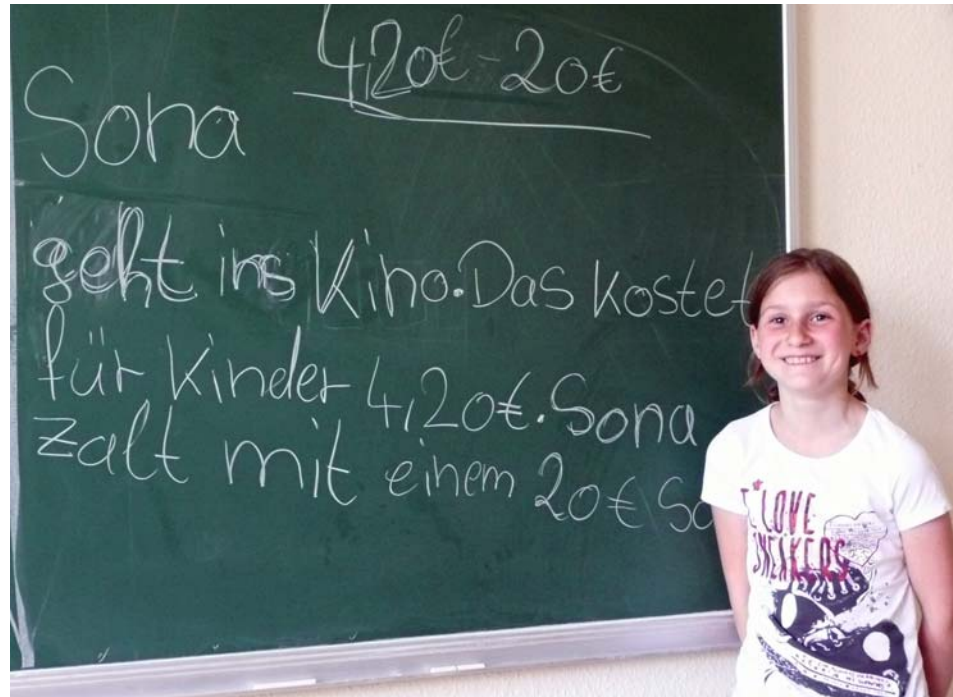 4,20€-20€
Sona
geht ins Kino. Das kostet
für Kinder 4,20€. Sona
zalt mit einem 20€
I LOVE
SNEAKERS